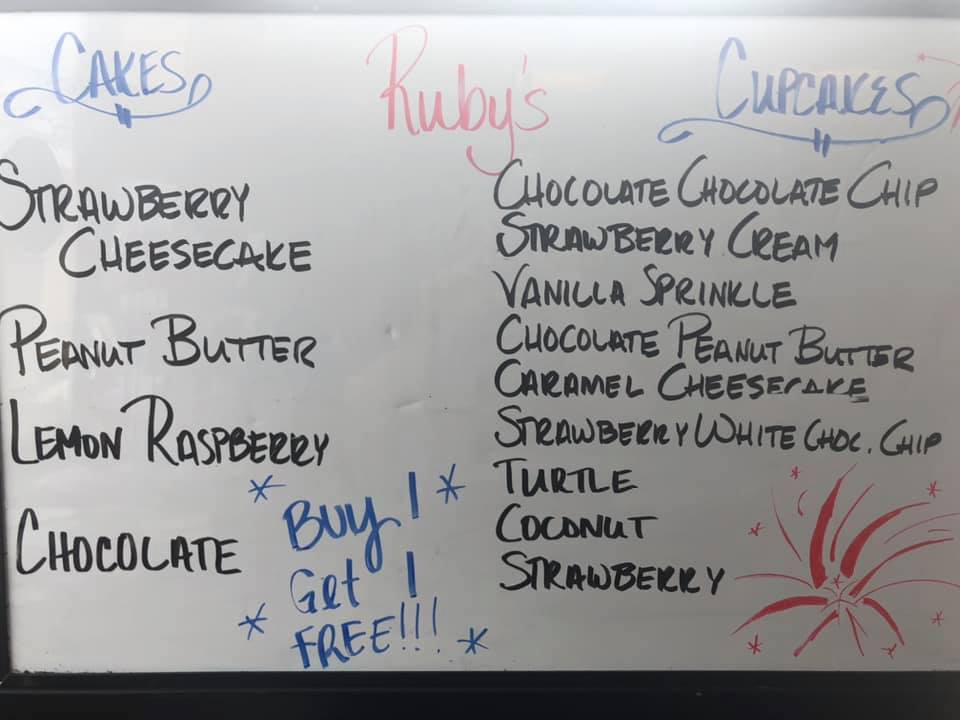 Ruby's
CAKES
STRAWBERRY
CHEESECAKE
PEANUT BUTTER
LEMON RASPBERRY
CHOCOLATE
BUY 1
Get 1
FREE!!!
CUPCAKES
CHOCOLATE CHOCOLATE CHIP
STRAWBERRY CREAM
VANILLA SPRINKLE
CHOCOLATE PEANUT BUTTER
CARAMEL CHEESECAKE
STRAWBERRY WHITE CHOC. CHIP
TURTLE
COCONUT
STRAWBERRY